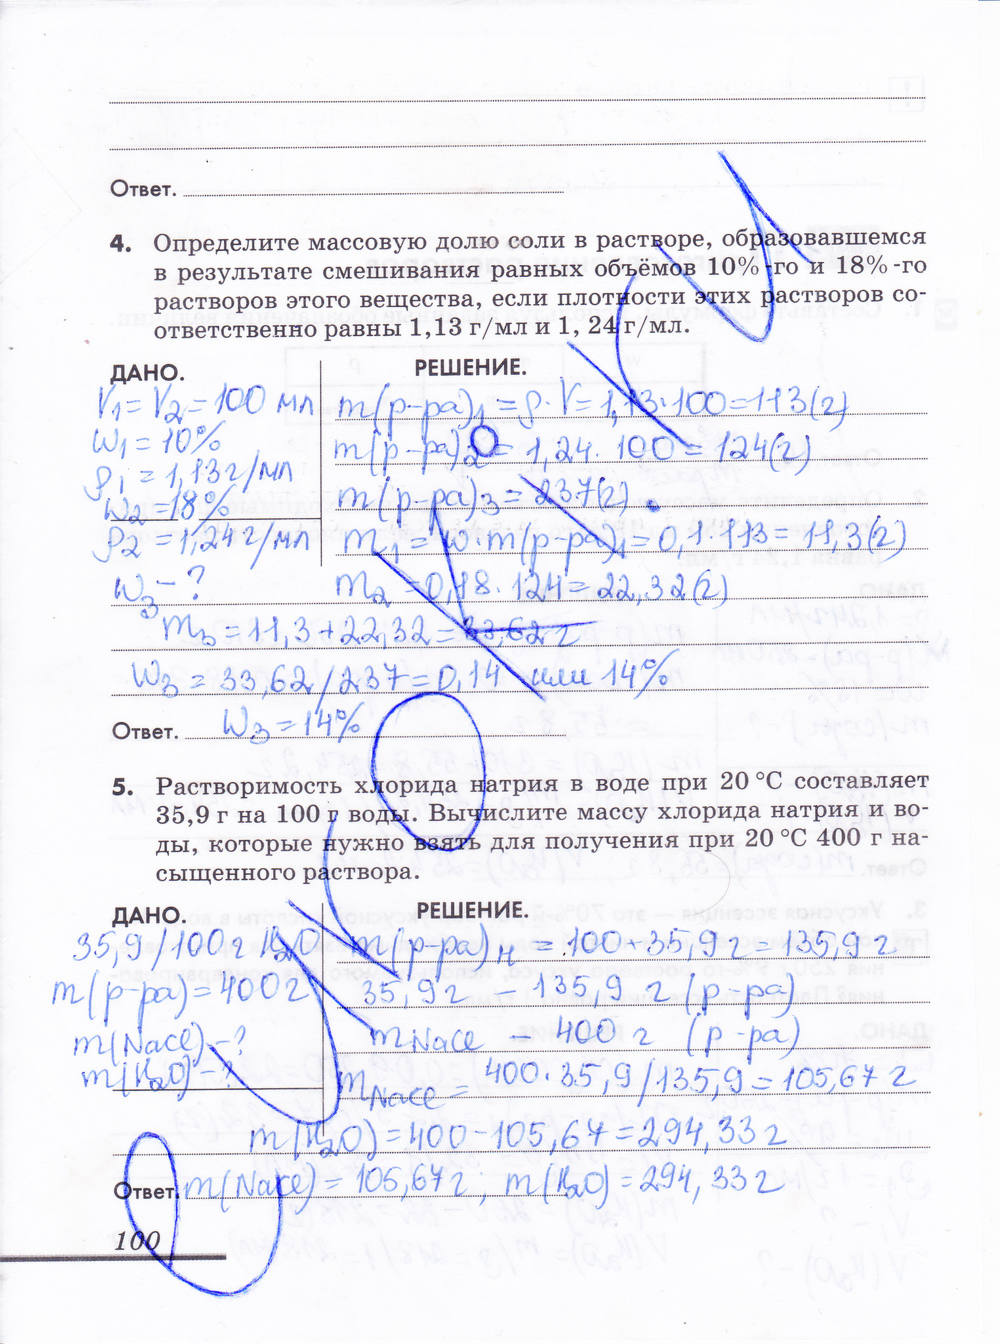 Ответ.
4. Определите массовую долю соли в растворе, образовавшемся
в результате смешивания равных объёмов 10%-го и 18%-го
растворов этого вещества, если плотности этих растворов со-
ответственно равны 1,13 г/мл и 1, 24 г/мл.
ДАНО. РЕШЕНИЕ.
V₁ = V₂ = 100 мл m(р-ра)₁ = ρ · V = 1,13·100 = 113(г)
ω₁ = 10% m(р-ра)₂ = 1,24 · 100 = 124(г)
ρ₁ = 1,13 г/мл m(р-ра)₃ = 237(г)
ω₂ = 18%
ρ₂ = 1,24 г/мл m₁ = ω·m(р-ра)₁ = 0,1·113 = 11,3(г)
ω₃ - ? m₂ = 0,18 · 124 = 22,32(г)
m₃ = 11,3 + 22,32 = 33,62 г
ω₃ = 33,62/237 = 0,14 или 14%
Ответ. ω₃ = 14%
5. Растворимость хлорида натрия в воде при 20 °С составляет
35,9 г на 100 г воды. Вычислите массу хлорида натрия и во-
ды, которые нужно взять для получения при 20 °С 400 г на-
сыщенного раствора.
ДАНО. РЕШЕНИЕ.
35,9/100 г H₂O m(р-ра)н = 100-35,9 г = 135,9 г
m(р-ра) = 400 г 35,9 г - 135,9 г (р-ра)
m(NaCl) - ? mNaCl - 400 г (р-ра)
m(H₂O) - ? mNaCl = 400·35,9/135,9 = 105,67 г
m(H₂O) = 400-105,67 = 294,33 г
Ответ. m(NaCl) = 105,67 г, m(H₂O) = 294,33 г
100